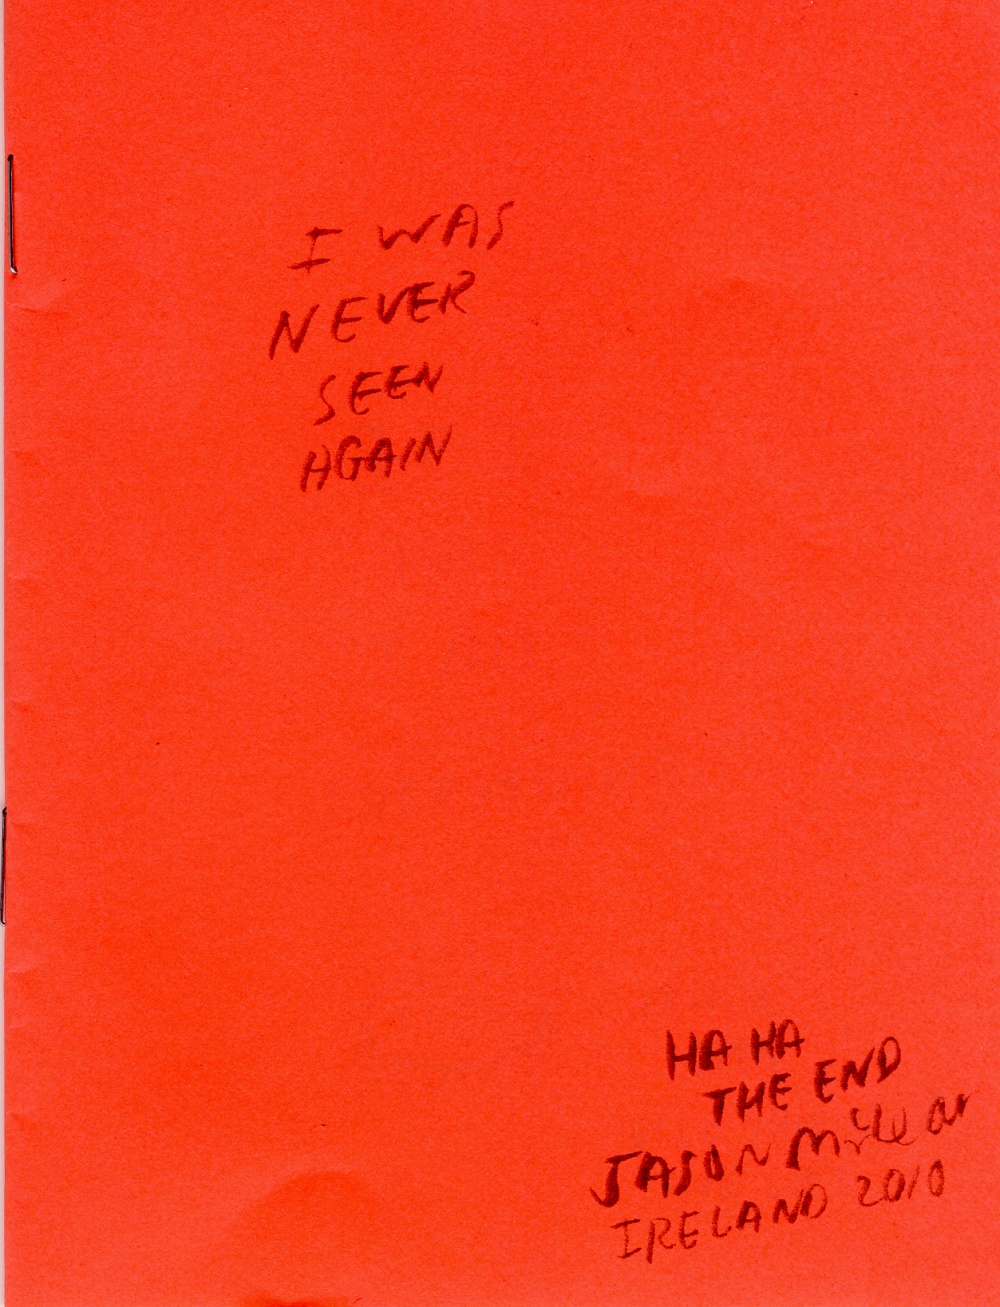 I WAS
NEVER
SEEN
AGAIN
HA HA
THE END
JASON
IRELAND 2010